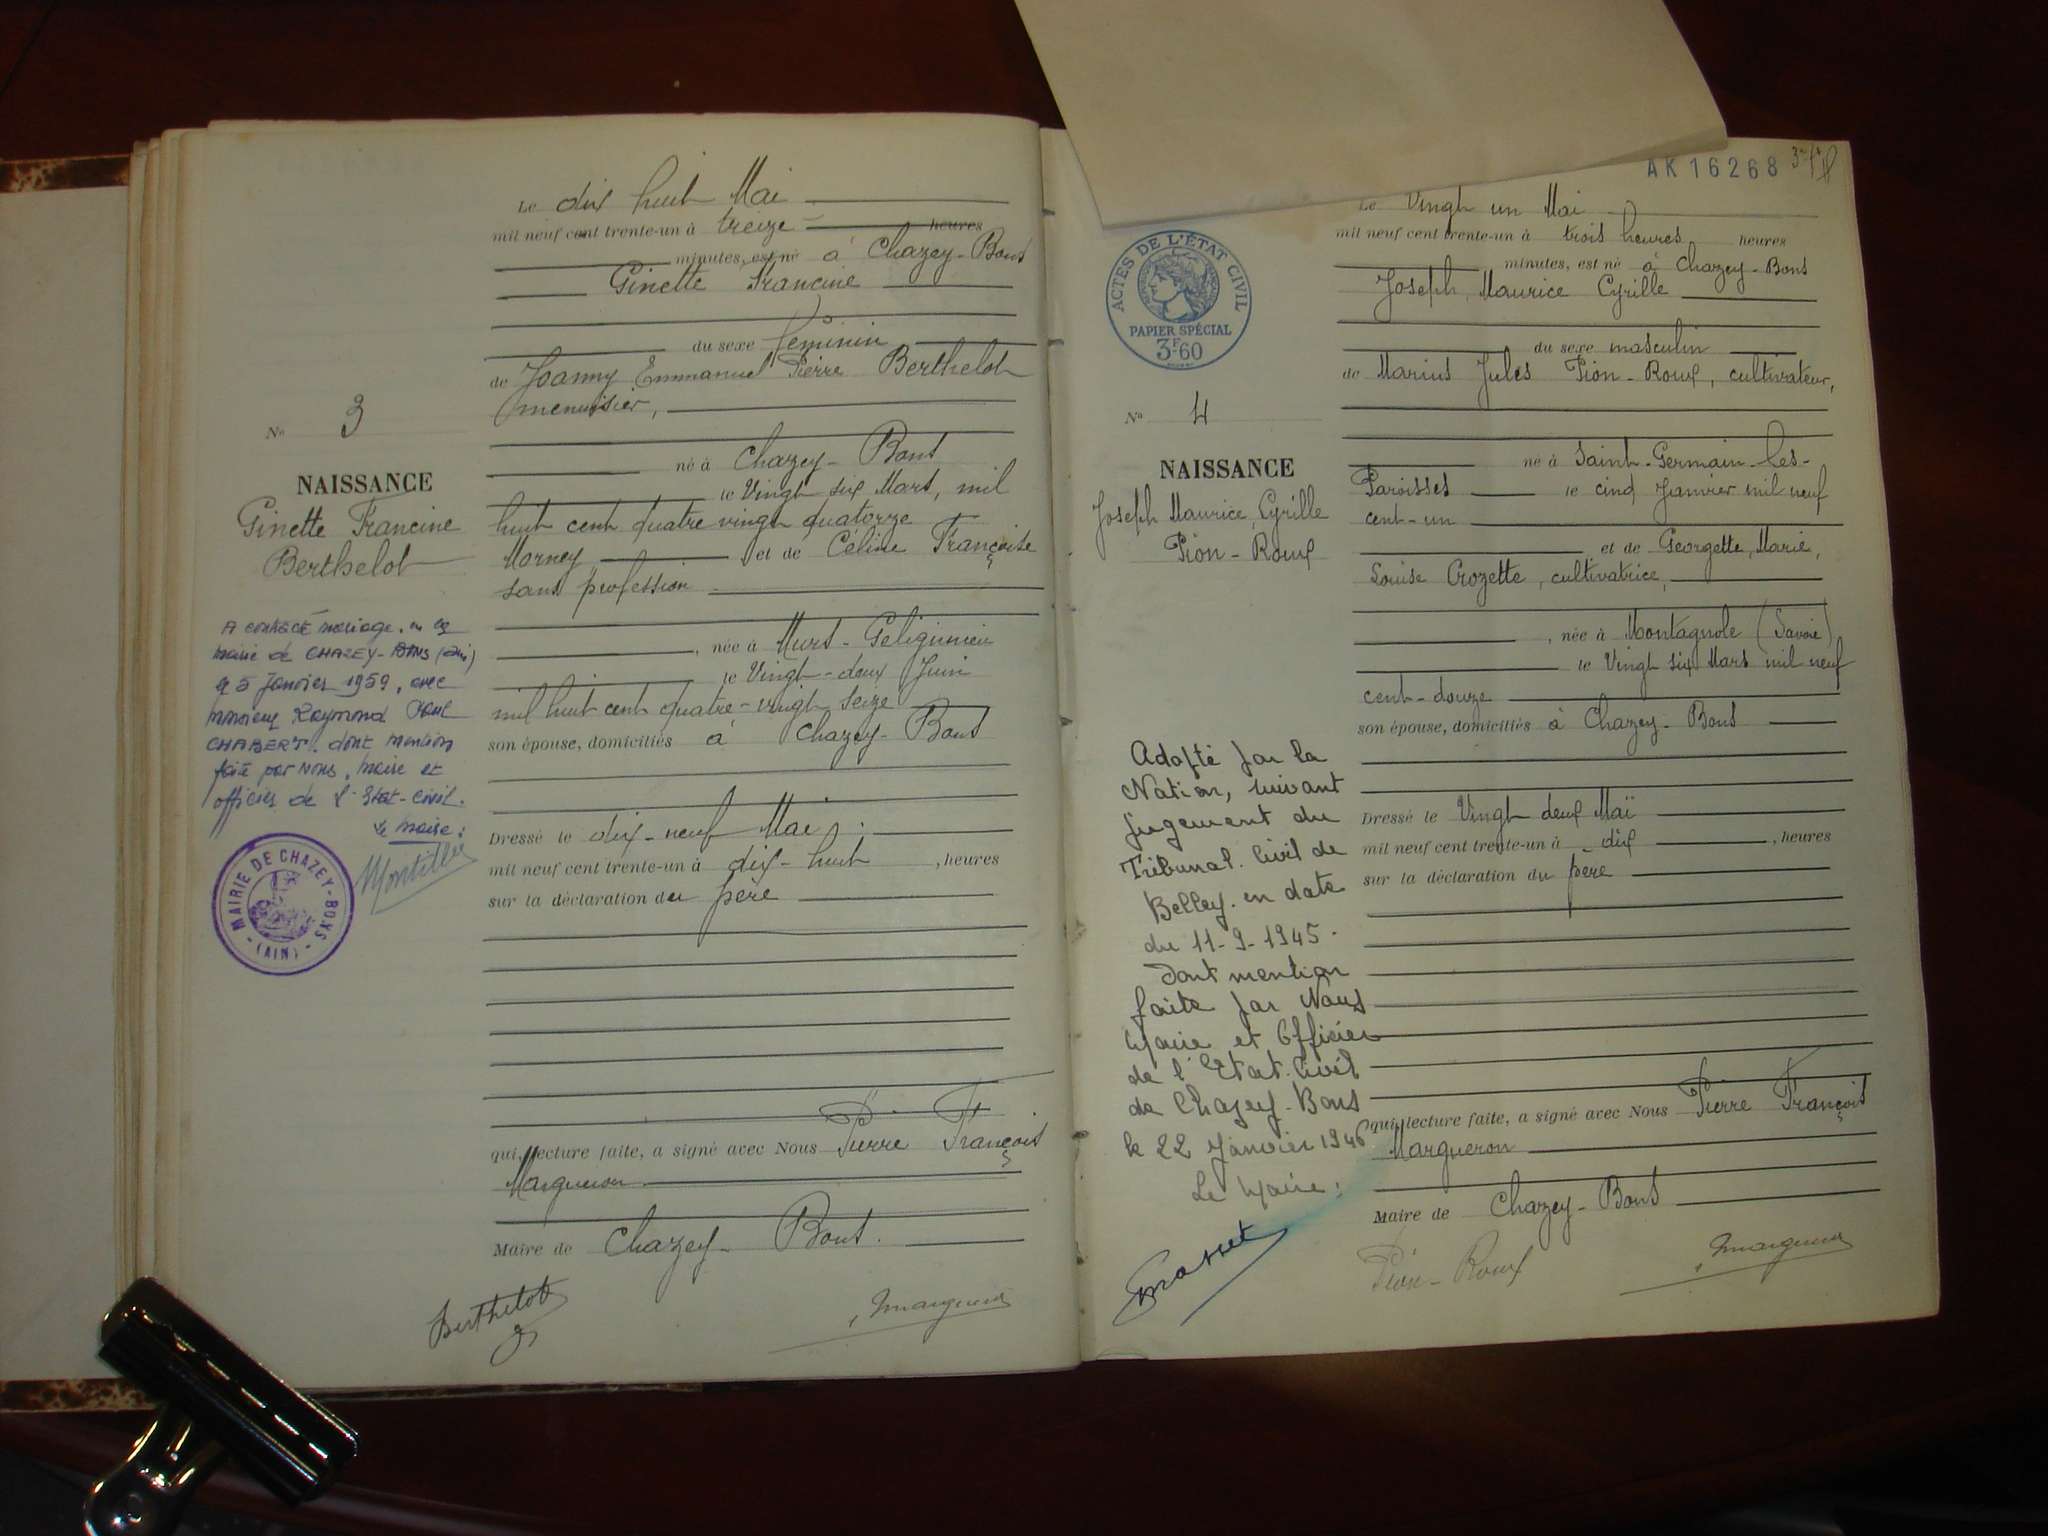 Le dix huit Mai
mil neuf cent trente-un à treize heures
minutes, est né à Chazey-Bons
Ginette Francine
du sexe féminin
de Joanny Emmanuel Pierre Berthelot
menuisier,
né à Chazey-Bons
le Vingt six Mars, mil
huit cent quatre vingt quatorze
Morney et de Celine Françoise
sans profession
, née à Murs-Geligneux
le Vingt-deux Juin
mil huit cent quatre-vingt seize
son épouse, domiciliés à Chazey-Bons
Dressé le dix-neuf Mai
mil neuf cent trente-un à dix-huit , heures
sur la déclaration du père
qui, lecture faite, a signé avec Nous Pierre François
Margueron
Maire de Chazey-Bons.
Berthelot
Margueron
No 3
NAISSANCE
Ginette Francine
Berthelot
A contracté mariage, en la
mairie de CHAZEY-BONS (Ain)
le 5 Janvier 1959, avec
Monsieur Raymond
CHABERT. dont mention
faite par Nous, Maire et
officier de l'Etat-civil.
Le Maire:
MAIRIE DE CHAZEY-BONS
(AIN)
AK 16268
Le Vingt un Mai
mil neuf cent trente-un à trois heures heures
minutes, est né à Chazey-Bons
Joseph, Maurice Cyrille
du sexe masculin
de Marius Jules Pion-Roux, cultivateur,
né à Saint-Germain-les-
Paroisses le cinq Janvier mil neuf
cent-un
et de Georgette, Marie,
Louise Crozette, cultivatrice,
, née à Montagnole (Savoie)
le Vingt six Mars mil neuf
cent-douze
son épouse, domiciliés à Chazey-Bons
Dressé le Vingt deux Maï
mil neuf cent trente-un à dix , heures
sur la déclaration du père
qui, lecture faite, a signé avec Nous Pierre François
Margueron
Maire de Chazey-Bons
Pion-Roux
Margueron
ACTES DE L'ÉTAT CIVIL
PAPIER SPÉCIAL
3F60
No 4
NAISSANCE
Joseph Maurice, Cyrille
Pion-Roux
Adopté par la
Nation, suivant
jugement du
Tribunal Civil de
Belley. en date
du 11-9-1945.
Dont mention
faite par Nous
Maire et Officier
de l'Etat.Civil
de Chazey-Bons
le 22 Janvier 1946
Le Maire: